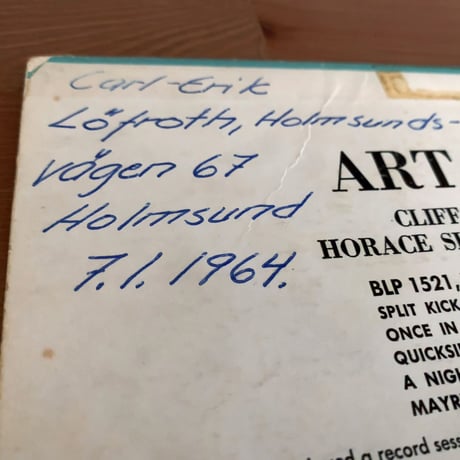 Carl-Erik
Löfroth, Holmsunds-
vägen 67
Holmsund
7.1. 1964.
ART
CLIFF
HORACE
BLP 1521,
SPLIT KICK
ONCE IN
QUICKSI
A NIG
MAYR
a record